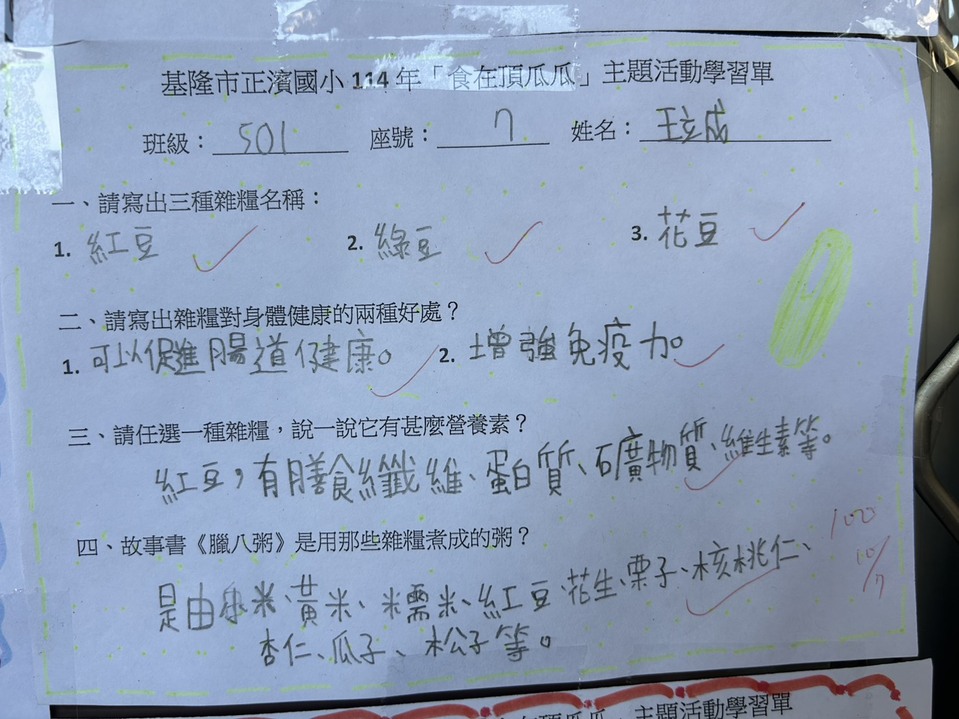 基隆市正濱國小114年「食在頂瓜瓜」主題活動學習單
班級：501 座號：7 姓名：王立成
一、請寫出三種雜糧名稱：
1. 紅豆 2. 綠豆 3. 花豆
二、請寫出雜糧對身體健康的兩種好處？
1. 可以促進腸道健康。 2. 增強免疫力。
三、請任選一種雜糧，說一說它有甚麼營養素？
紅豆，有膳食纖維、蛋白質、礦物質、維生素等。
四、故事書《臘八粥》是用那些雜糧煮成的粥？
是由小米、黃米、糯米、紅豆、花生、栗子、核桃仁、
杏仁、瓜子、松子等。
100
10/7
在頂瓜瓜」主題活動學習單